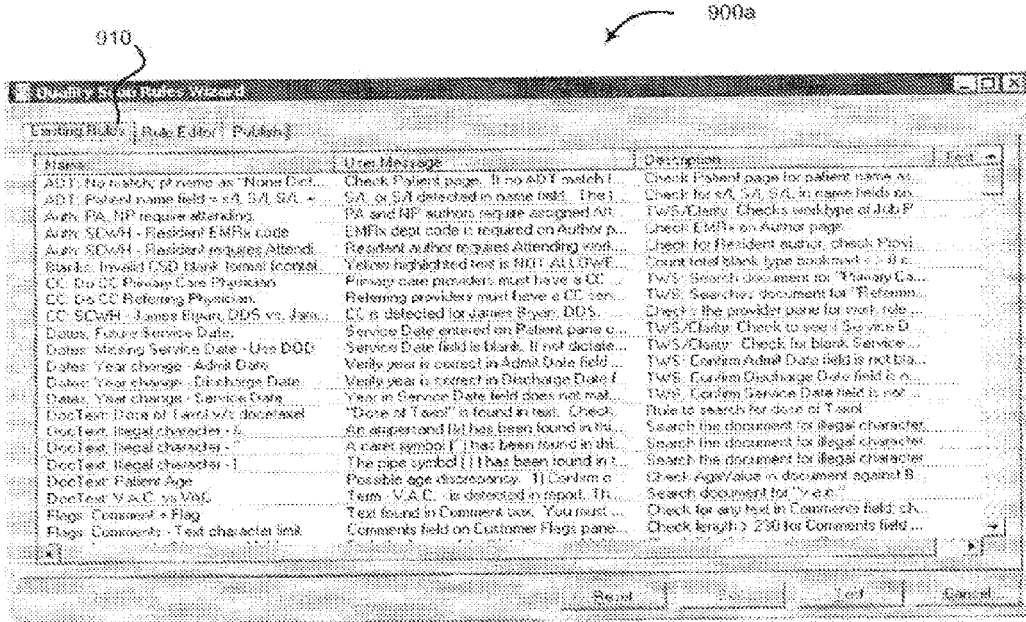 900a
910
Quality Scan Rules Wizard
Existing Rules Rule Editor Publish
Name User Message Description Text
ADT: No match; pt name as "None Dict... Check Patient page. If no ADT match f... Check Patient page for patient name as...
ADT: Patient name field = s/l, S/l, S/L S/L or S/l detected in name field. The Check for s/l, S/l, S/L in name fields on...
Auth: PA, NP require attending. PA and NP authors require assigned Att... TWS/Clarity: Checks worktype of Job P...
Auth: SCWH - Resident EMRx code EMRx dept code is required on Author p... Check EMRx on Author page.
Auth: SCWH - Resident requires Attendi... Resident author requires Attending work... Check for Resident author, check Provi...
Blanks: Invalid CSD blank format (contai... Yellow highlighted text is NOT ALLOWE... Count total blank type bookmark
CC: Do CC Primary Care Physician. Primary care providers must have a CC ... TWS: Search document for "Primary Ca...
CC: Do CC Referring Physician. Referring providers must have a CC TWS: Searches document for "Referrin...
CC: SCWH - James Bryan, DDS vs. Jam... CC is detected for James Bryan, DDS. Checks the provider pane for work role
Dates: Future Service Date. Service Date entered on Patient pane TWS/Clarity: Check to see if Service D...
Dates: Missing Service Date - Use DOD Service Date field is blank. If not dictate... TWS/Clarity: Check for blank Service ...
Dates: Year change - Admit Date Verify year is correct in Admit Date field ... TWS: Confirm Admit Date field is not bla...
Dates: Year change - Discharge Date Verify year is correct in Discharge Date f... TWS: Confirm Discharge Date field is
Dates: Year change - Service Date Year in Service Date field does not mat... TWS: Confirm Service Date is not ...
DocText: Dose of Taxol v/s docetaxel "Dose of Taxol" is found in text. Check... Rule to search for dose of Taxol
DocText: Illegal character - & An ampersand (&) has been found in thi... Search the document for illegal character
DocText: Illegal character - ^ A caret symbol (^) has been found in thi... Search the document for illegal character
DocText: Illegal character - | The pipe symbol (|) has been found in t... Search the document for illegal character
DocText: Patient Age Possible age discrepancy. 1) Confirm Check AgeValue in document against
DocText: V.A.C. vs VAC Term - V.A.C. - is detected in report. Th... Search document for "v.a.c."
Flags: Comment + Flag Text found in Comment box. You must ... Check for any text in Comments field; ch...
Flags: Comments - Text character limit Comments field on Customer Flags pane... Check length > 230 for Comments field ...
Reset Test Cancel